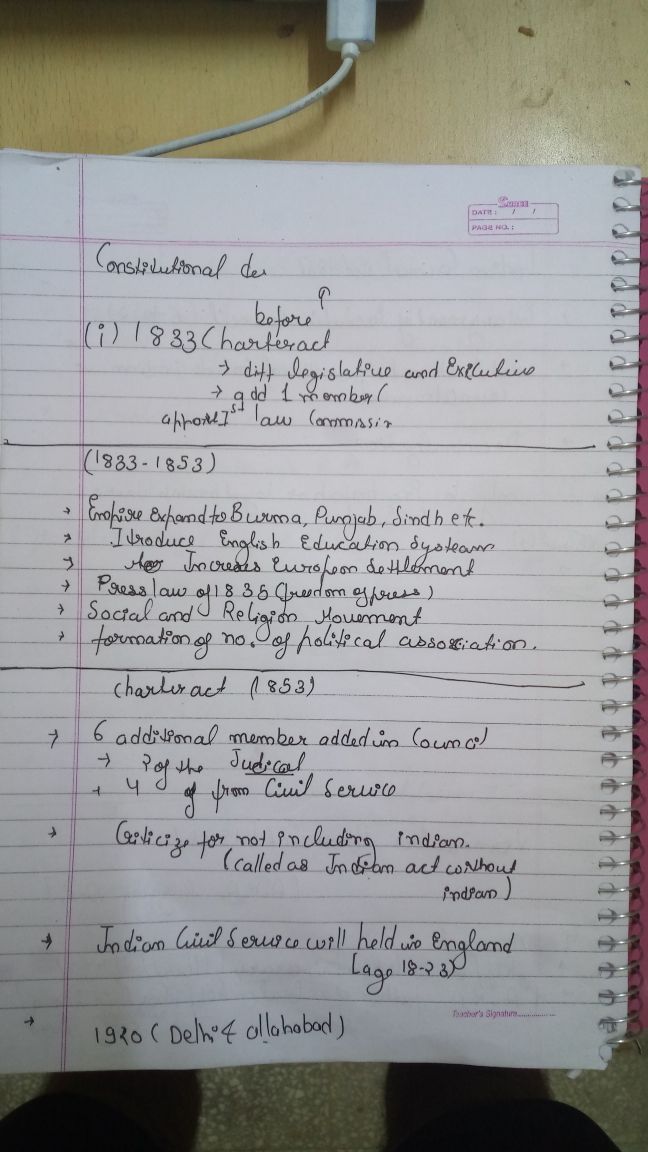 DATE : / /
PAGE NO. :
Constitutional de
before
(i) 1833 Charteract
→ diff legislative and Executive
→ add 1 member (
appoint Ist law Commissin
(1833-1853)
→ Empire Expand to Burma, Punjab, Sindh etc.
→ Itroduce English Education Systeam
→ Increas European Settlement
→ Press law of 1835 (freedom of press)
→ Social and Religion Movement
→ formation of no. of political association.
Charter act (1853)
→ 6 additional member added in Council
→ 2 of the Judical
→ 4 of from Civil Service
→ Criticize for not including indian.
(called as Indian act without
indian)
→ Indian Civil Service will held in England
[age 18-23)
→ 1920 (Delhi & allahabad)
Teacher's Signature................